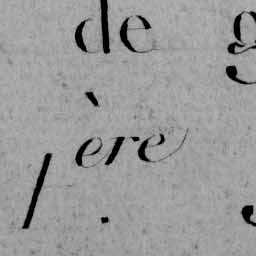 de g
1.ère